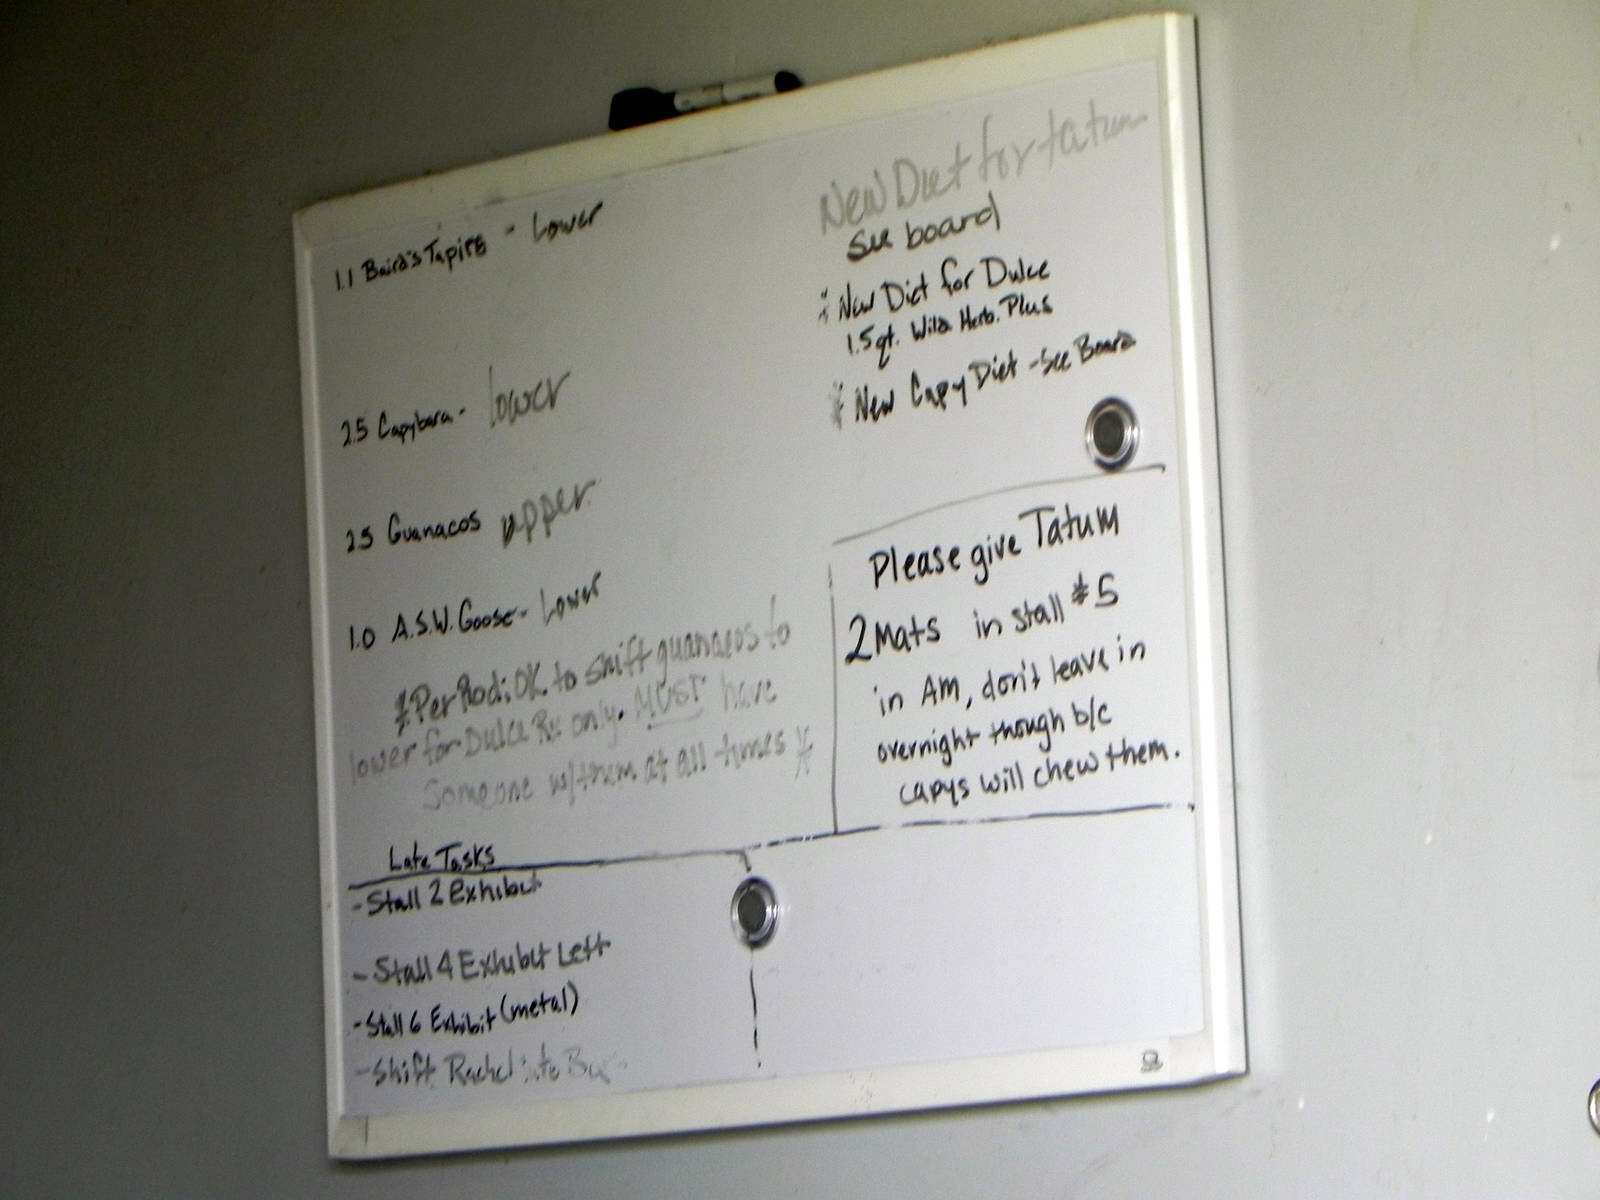 1.1 Baird's Tapirs - Lower
2.5 Capybara - lower
2.5 Guanacos upper
1.0 A.S.W. Goose - Lower
* Per Rodi: OK to shift guanacos to
lower for Dulce Rx only. MUST have
Someone w/ them at all times *
Late Tasks
- Stall 2 Exhibit
- Stall 4 Exhibit Left
- Stall 6 Exhibit (metal)
- Shift Rachel into
New Diet for tatum
See board
* New Diet for Dulce
1.5 qt. Wild Herb. Plus
* New Capy Diet - See Board
Please give Tatum
2 Mats in stall #5
in AM, don't leave in
overnight though b/c
capys will chew them.